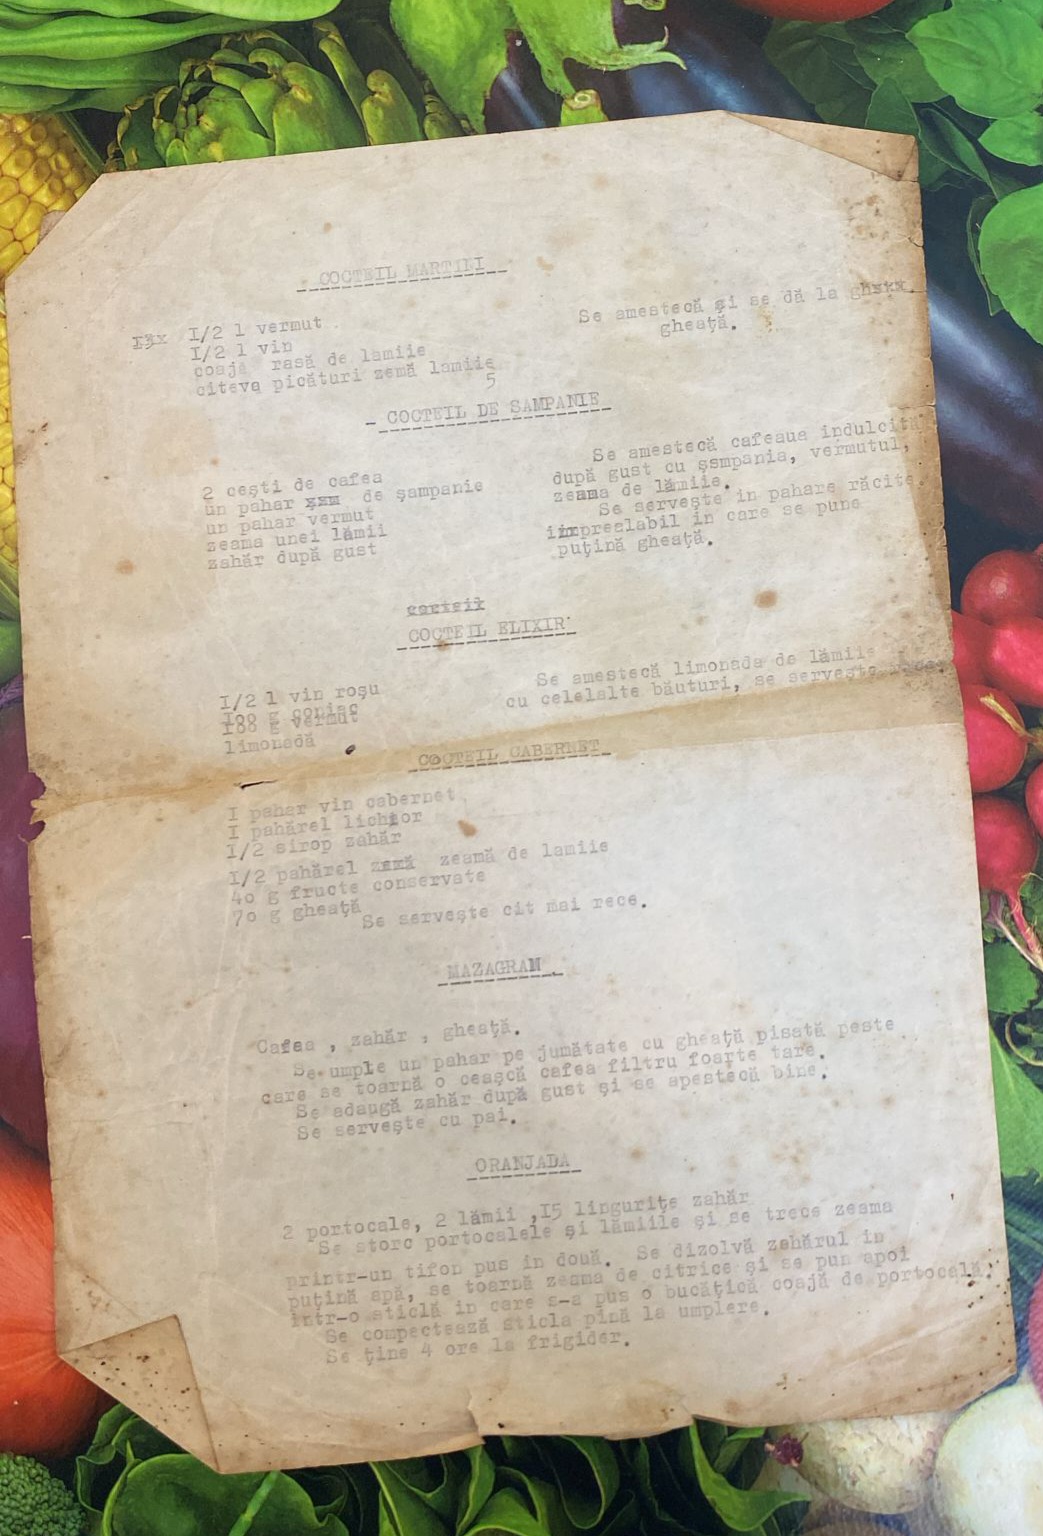 COCTEIL MARTINI
I3x I/2 l vermut
I/2 l vin
coajă rasă de lamiie
citeva picături zemă lamiie
5
Se amestecă și se dă la
gheață.
COCTEIL DE SAMPANIE
2 cești de cafea
un pahar de șampanie
un pahar vermut
zeama unei lămii
zahăr după gust
Se amestecă cafeaua indulcită
după gust cu șsmpania, vermutul,
zeama de lămiie.
Se servește in pahare răcite
impreelabil in care se pune
puțină gheață.
COCTEIL ELIXIR
I/2 l vin roșu
I00 g coniac
I00 g vermut
limonadă
Se amestecă limonada de lămiie
cu celelalte băuturi, se servește
COCTEIL CABERNET
I pahar vin cabernet
I pahărel lichior
I/2 sirop zahăr
I/2 pahărel zeamă de lamiie
4o g fructe conservate
7o g gheață
Se servește cit mai rece.
MAZAGRAN
Cafea , zahăr , gheață.
Se umple un pahar pe jumătate cu gheață pisată peste
care se toarnă o ceașcă cafea filtru foarte tare.
Se adaugă zahăr după gust și se apestecă bine.
Se servește cu pai.
ORANJADA
2 portocale, 2 lămii ,I5 lingurițe zahăr
Se storc portocalele și lămiile și se trece zeama
printr-un tifon pus in două. Se dizolvă zehărul in
puțină apă, se toarnă zeama de citrice și se pun apoi
intr-o sticlă in care s-a pus o bucățică coajă de portocală.
Se compectează sticla pînă la umplere.
Se ține 4 ore la frigider.